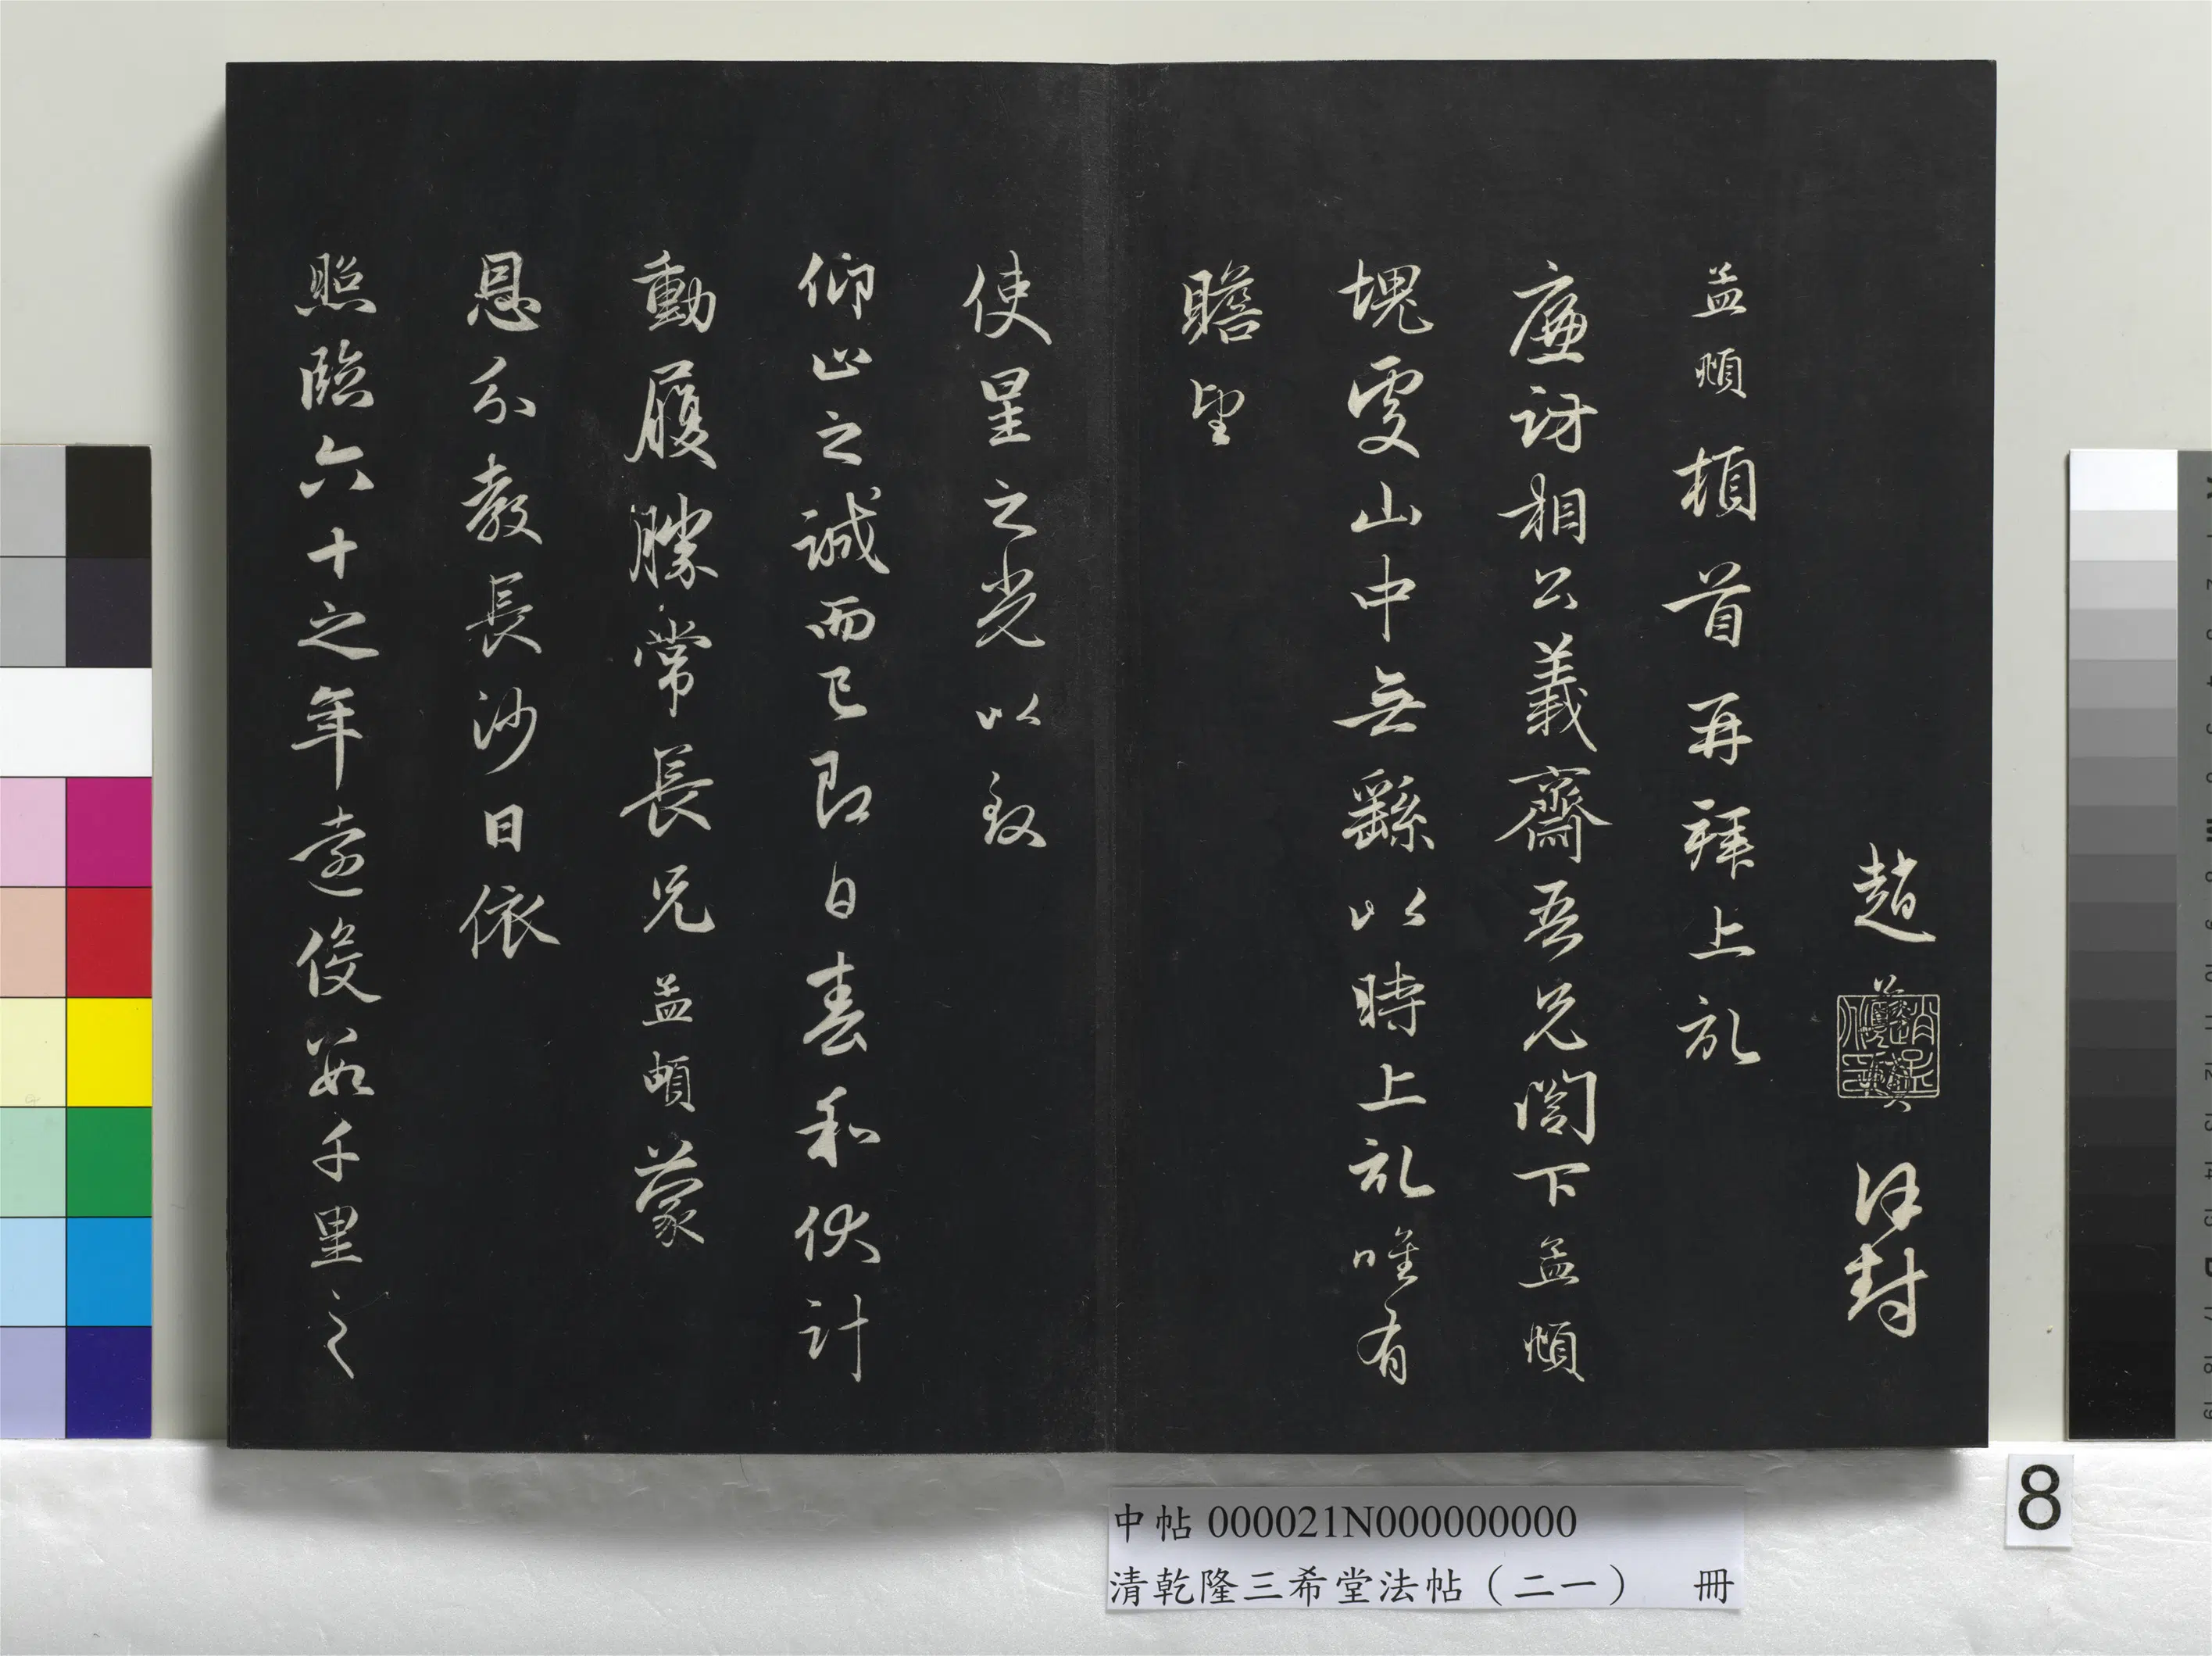 趙孟頫謹封
孟頫頓首再拜上記
廉訪相公義齋吾兄閤下孟頫
塊處山中無繇以時上記唯有
瞻望
使星之光以致
仰止之誠而已即日春和伏計
動履勝常長兄孟頫蒙
恩分教長沙日依
照臨六十之年遠役數千里之
中帖 000021N000000000
清乾隆三希堂法帖（二一） 冊
8